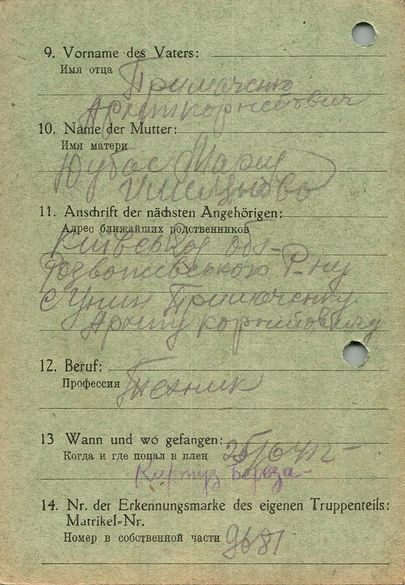 9. Vorname des Vaters:
Имя отца Примаченко
Архип Корнеевич
10. Name der Mutter:
Имя матери
Мария
11. Anschrift der nächsten Angehörigen:
Адрес ближайших родственников
Київська обл-
Розважевського Р-ну
с Унин Примаченку
Архипу
12. Beruf:
Профессия Техник
13 Wann und wo gefangen:
Когда и где попал в плен
Картуз Береза-
14. Nr. der Erkennungsmarke des eigenen Truppenteils:
Matrikel-Nr.
Номер в собственной части 9681